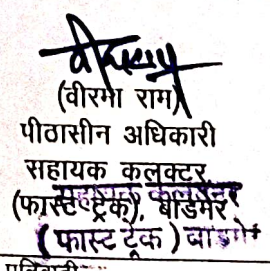 (वीरमा राम)
पीठासीन अधिकारी
सहायक कलक्टर
(फास्ट ट्रेक), बाडमेर
सहायक कलक्टर
(फास्ट ट्रेक) बाडमेर